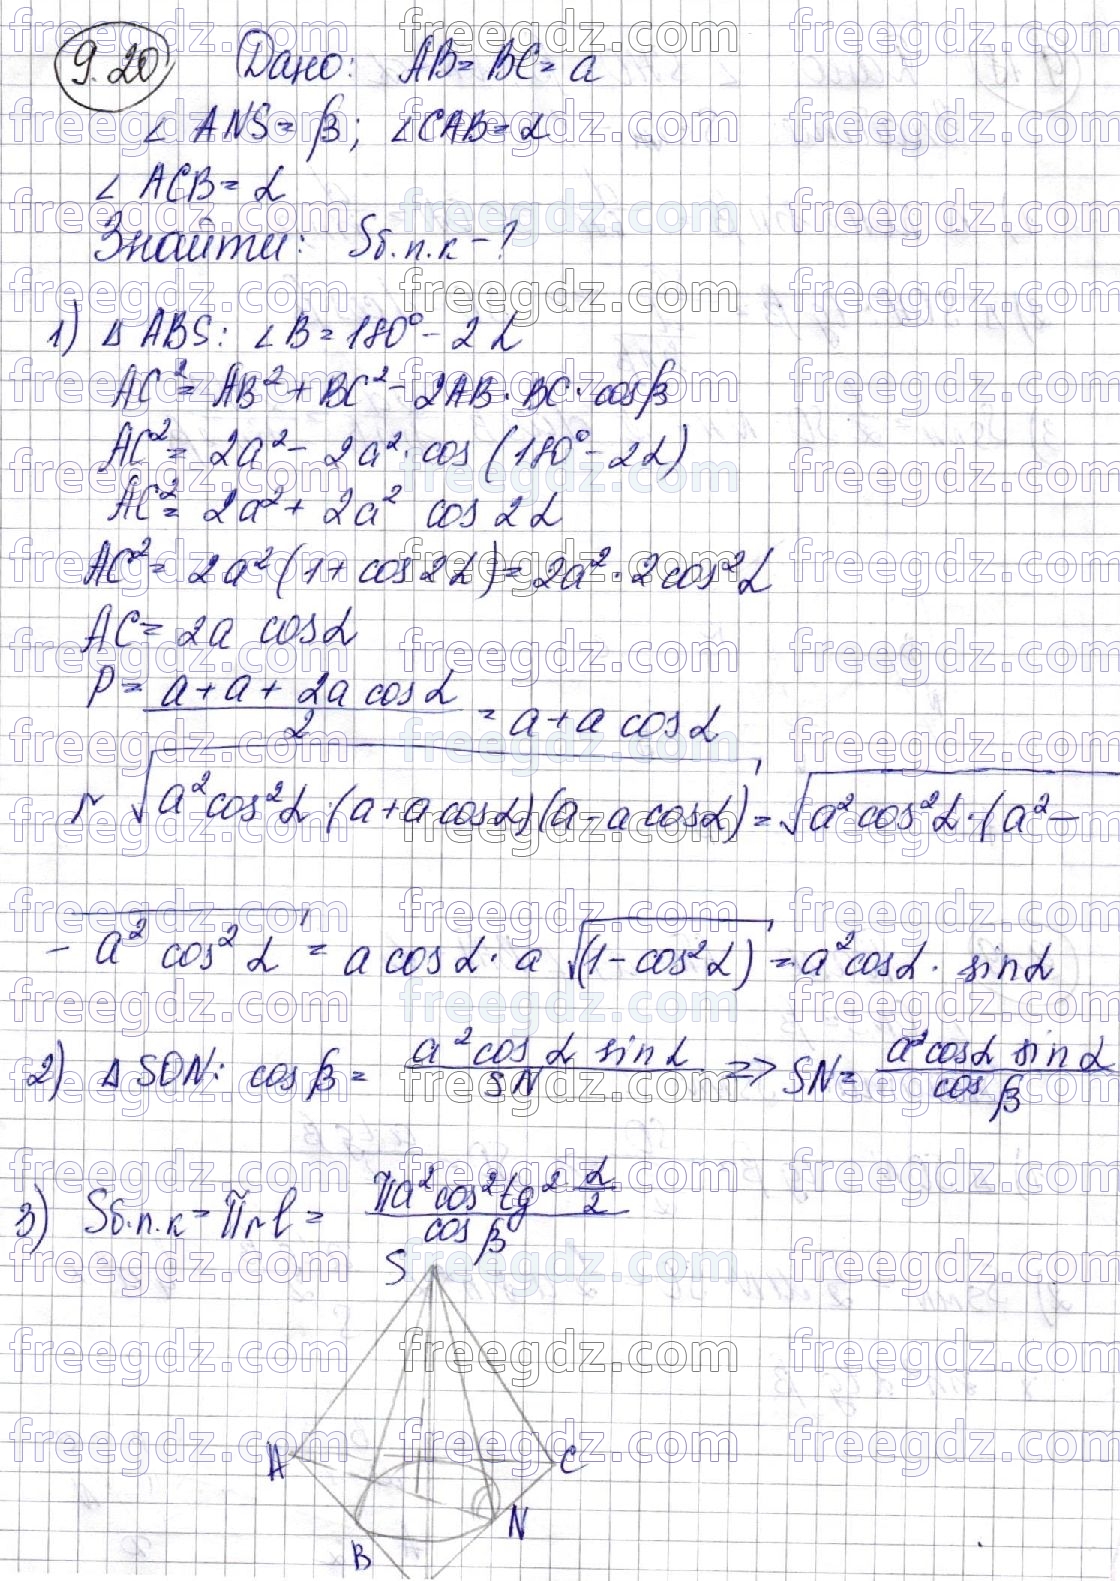 9.20 Дано: AB = BC = a
∠ ANS = β; ∠CAB = α
∠ ACB = α
Знайти: Sб.п.к - ?
1) Δ ABS: ∠B = 180° - 2α
AC² = AB² + BC² - 2AB · BC · cosβ
AC² = 2a² - 2a² · cos (180° - 2α)
AC² = 2a² + 2a² cos 2α
AC² = 2a² (1 + cos 2α) = 2a² · 2cos²α
AC = 2a cosα
P = (a + a + 2a cosα)/2 = a + a cosα
r √(a² cos²α · (a + a cosα)(a - a cosα)) = √(a² cos²α · (a² -
- a² cos²α = a cosα · a √(1 - cos²α) = a² cosα · sinα
2) Δ SON: cosβ = (a² cosα sinα)/SN => SN = (a² cosα sinα)/cosβ
3) Sб.п.к = πrl = (πa² cos² tg² α/2)/cosβ
S
A
C
N
B
freegdz.com